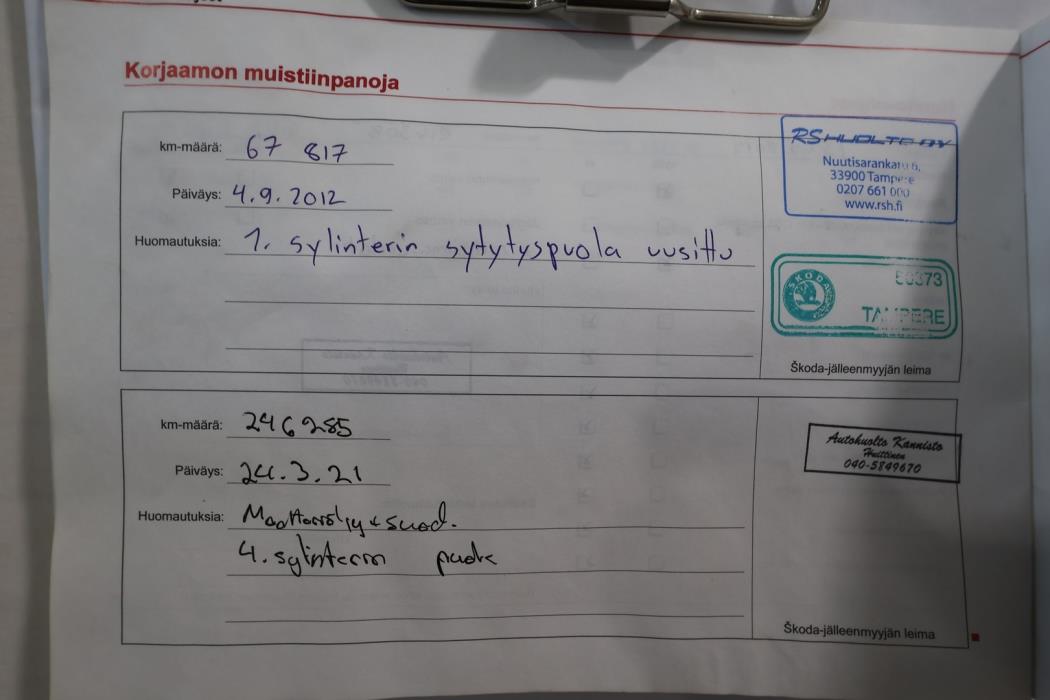 Korjaamon muistiinpanoja
km-määrä: 67 817
Päiväys: 4.9.2012
Huomautuksia: 1. sylinterin sytytyspuola uusittu
RS HUOLTO OY
Nuutisarankatu 6,
33900 Tampere
0207 661 000
www.rsh.fi
ŠKODA
50373
TAMPERE
Škoda-jälleenmyyjän leima
km-määrä: 246 285
Päiväys: 24.3.21
Huomautuksia: Moottoriöljy + suod.
4. sylinterin puola
Autohuolto Kannisto
Huittinen
040-5849670
Škoda-jälleenmyyjän leima